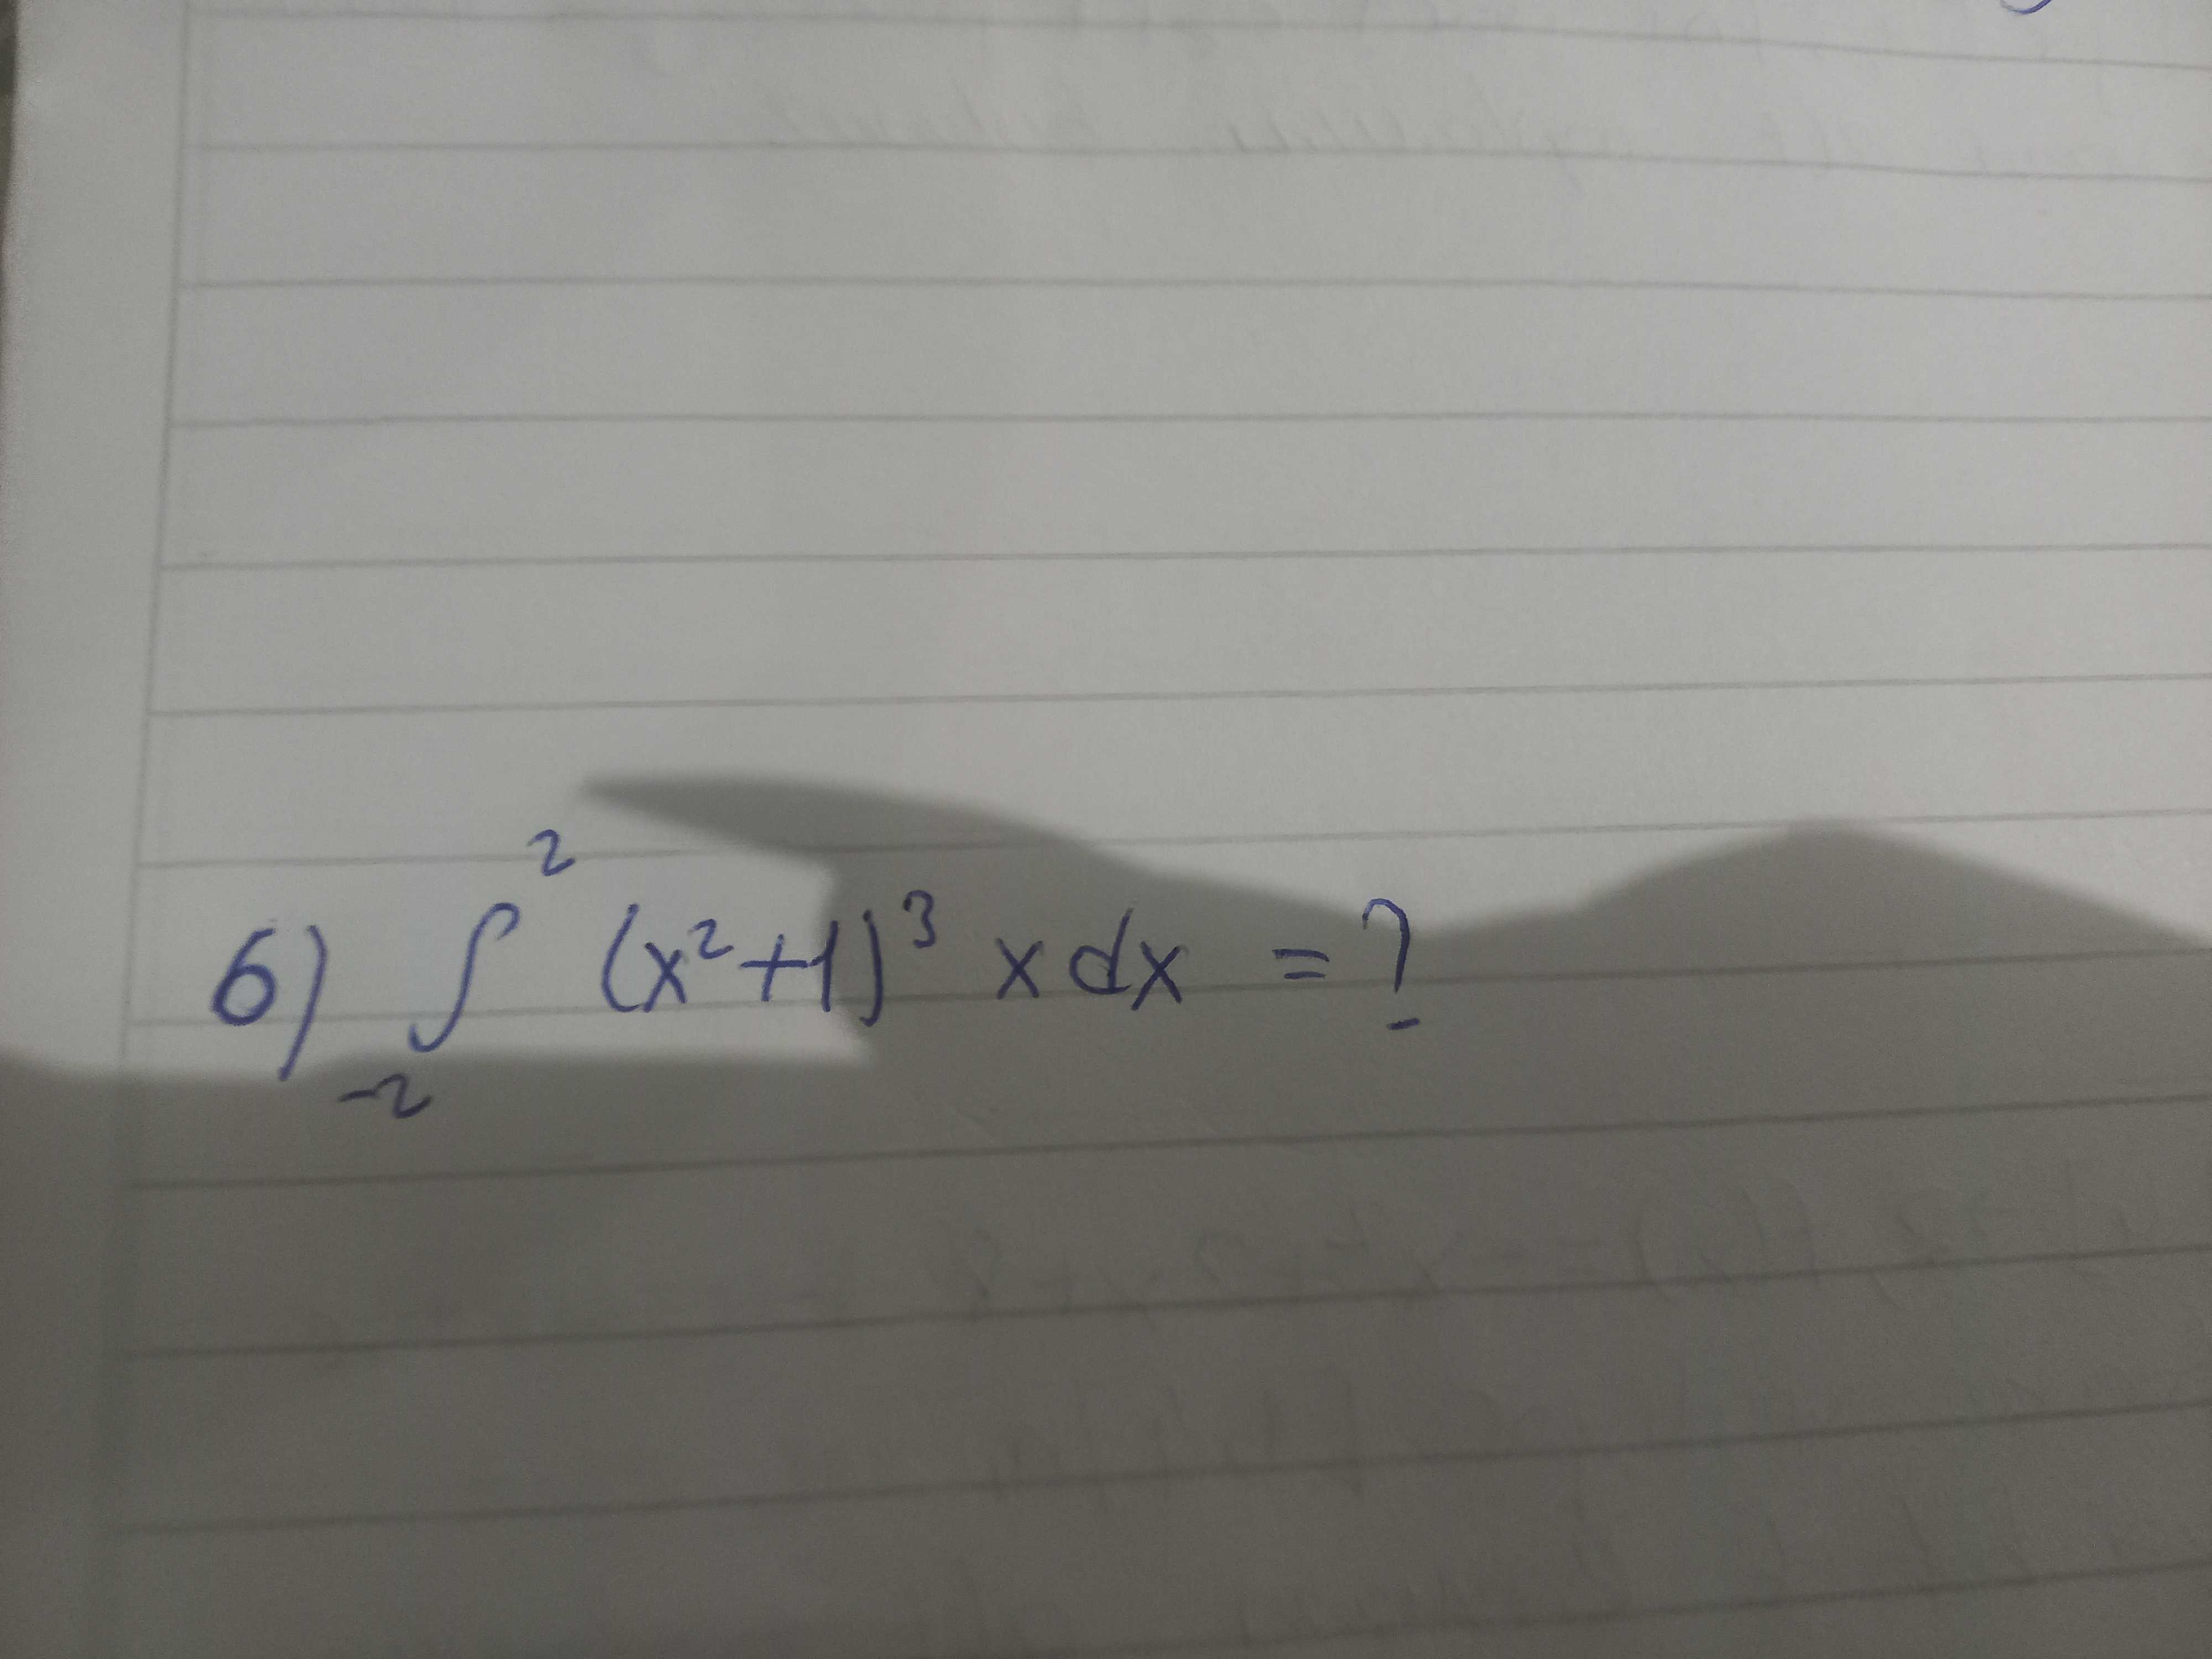 6) ∫₋₂² (x²+1)³ x dx = ?